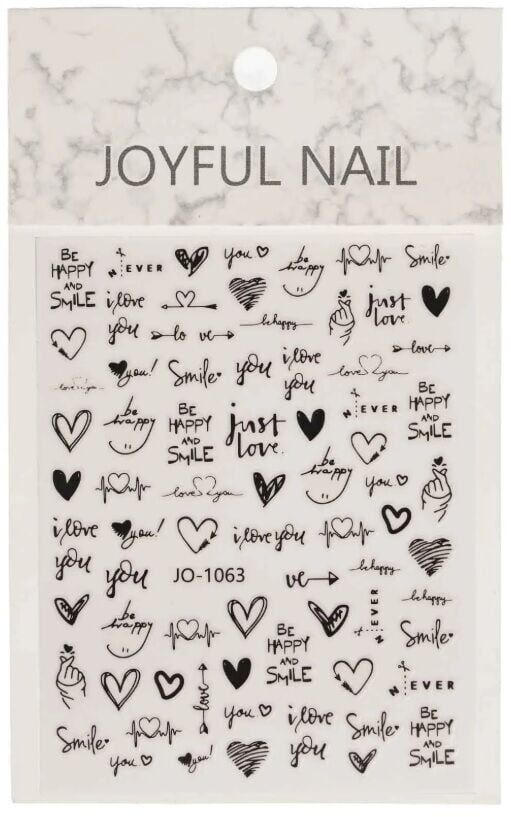 JOYFUL NAIL
BE HAPPY AND SMILE
NEVER
you
be happy
Smile
i love you
just love.
lo ve
be happy
love
you!
Smile
you
i love you
love you
love you
NEVER
BE HAPPY AND SMILE
be happy
BE HAPPY AND SMILE
just love.
be happy
you
love you
i love you
you!
i love you
you
JO-1063
ve
be happy
be happy
NEVER
be happy
BE HAPPY AND SMILE
Smile
love
NEVER
you
i love you
Smile
BE HAPPY AND SMILE
Smile
you
you!